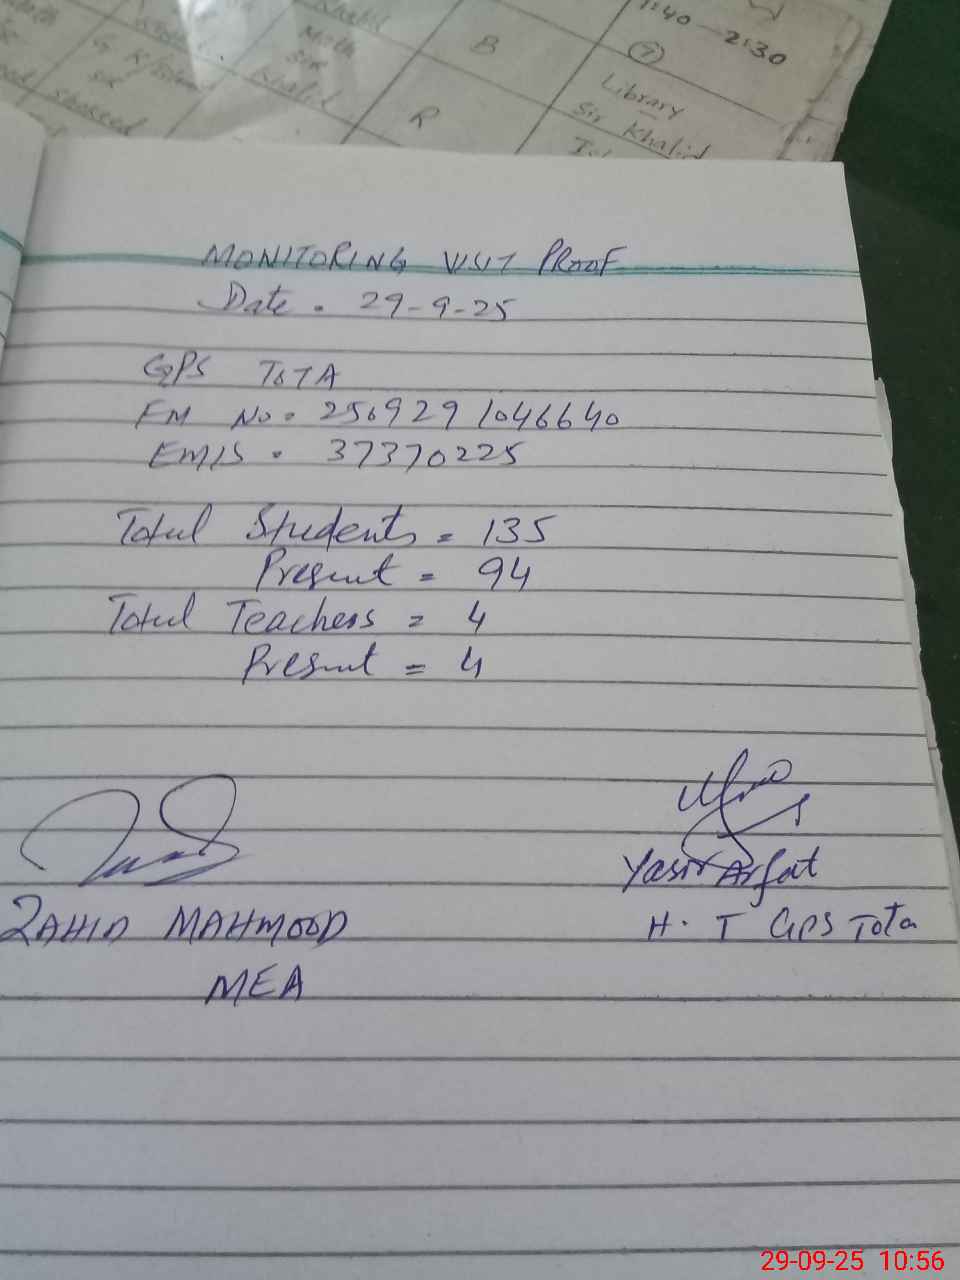 1:40 — 2:30
7
B
Library
Math
Sir
G
Sir
Khalid
R
Sir Khalid
MONITORING VISIT PROOF
Date . 29-9-25
GPS TOTA
EM No. 2569291046640
EMIS . 37370225
Total Students = 135
Present = 94
Total Teachers = 4
Present = 4
Yasir Arfat
ZAHID MAHMOOD
H. T GPS Tota
MEA
29-09-25 10:56